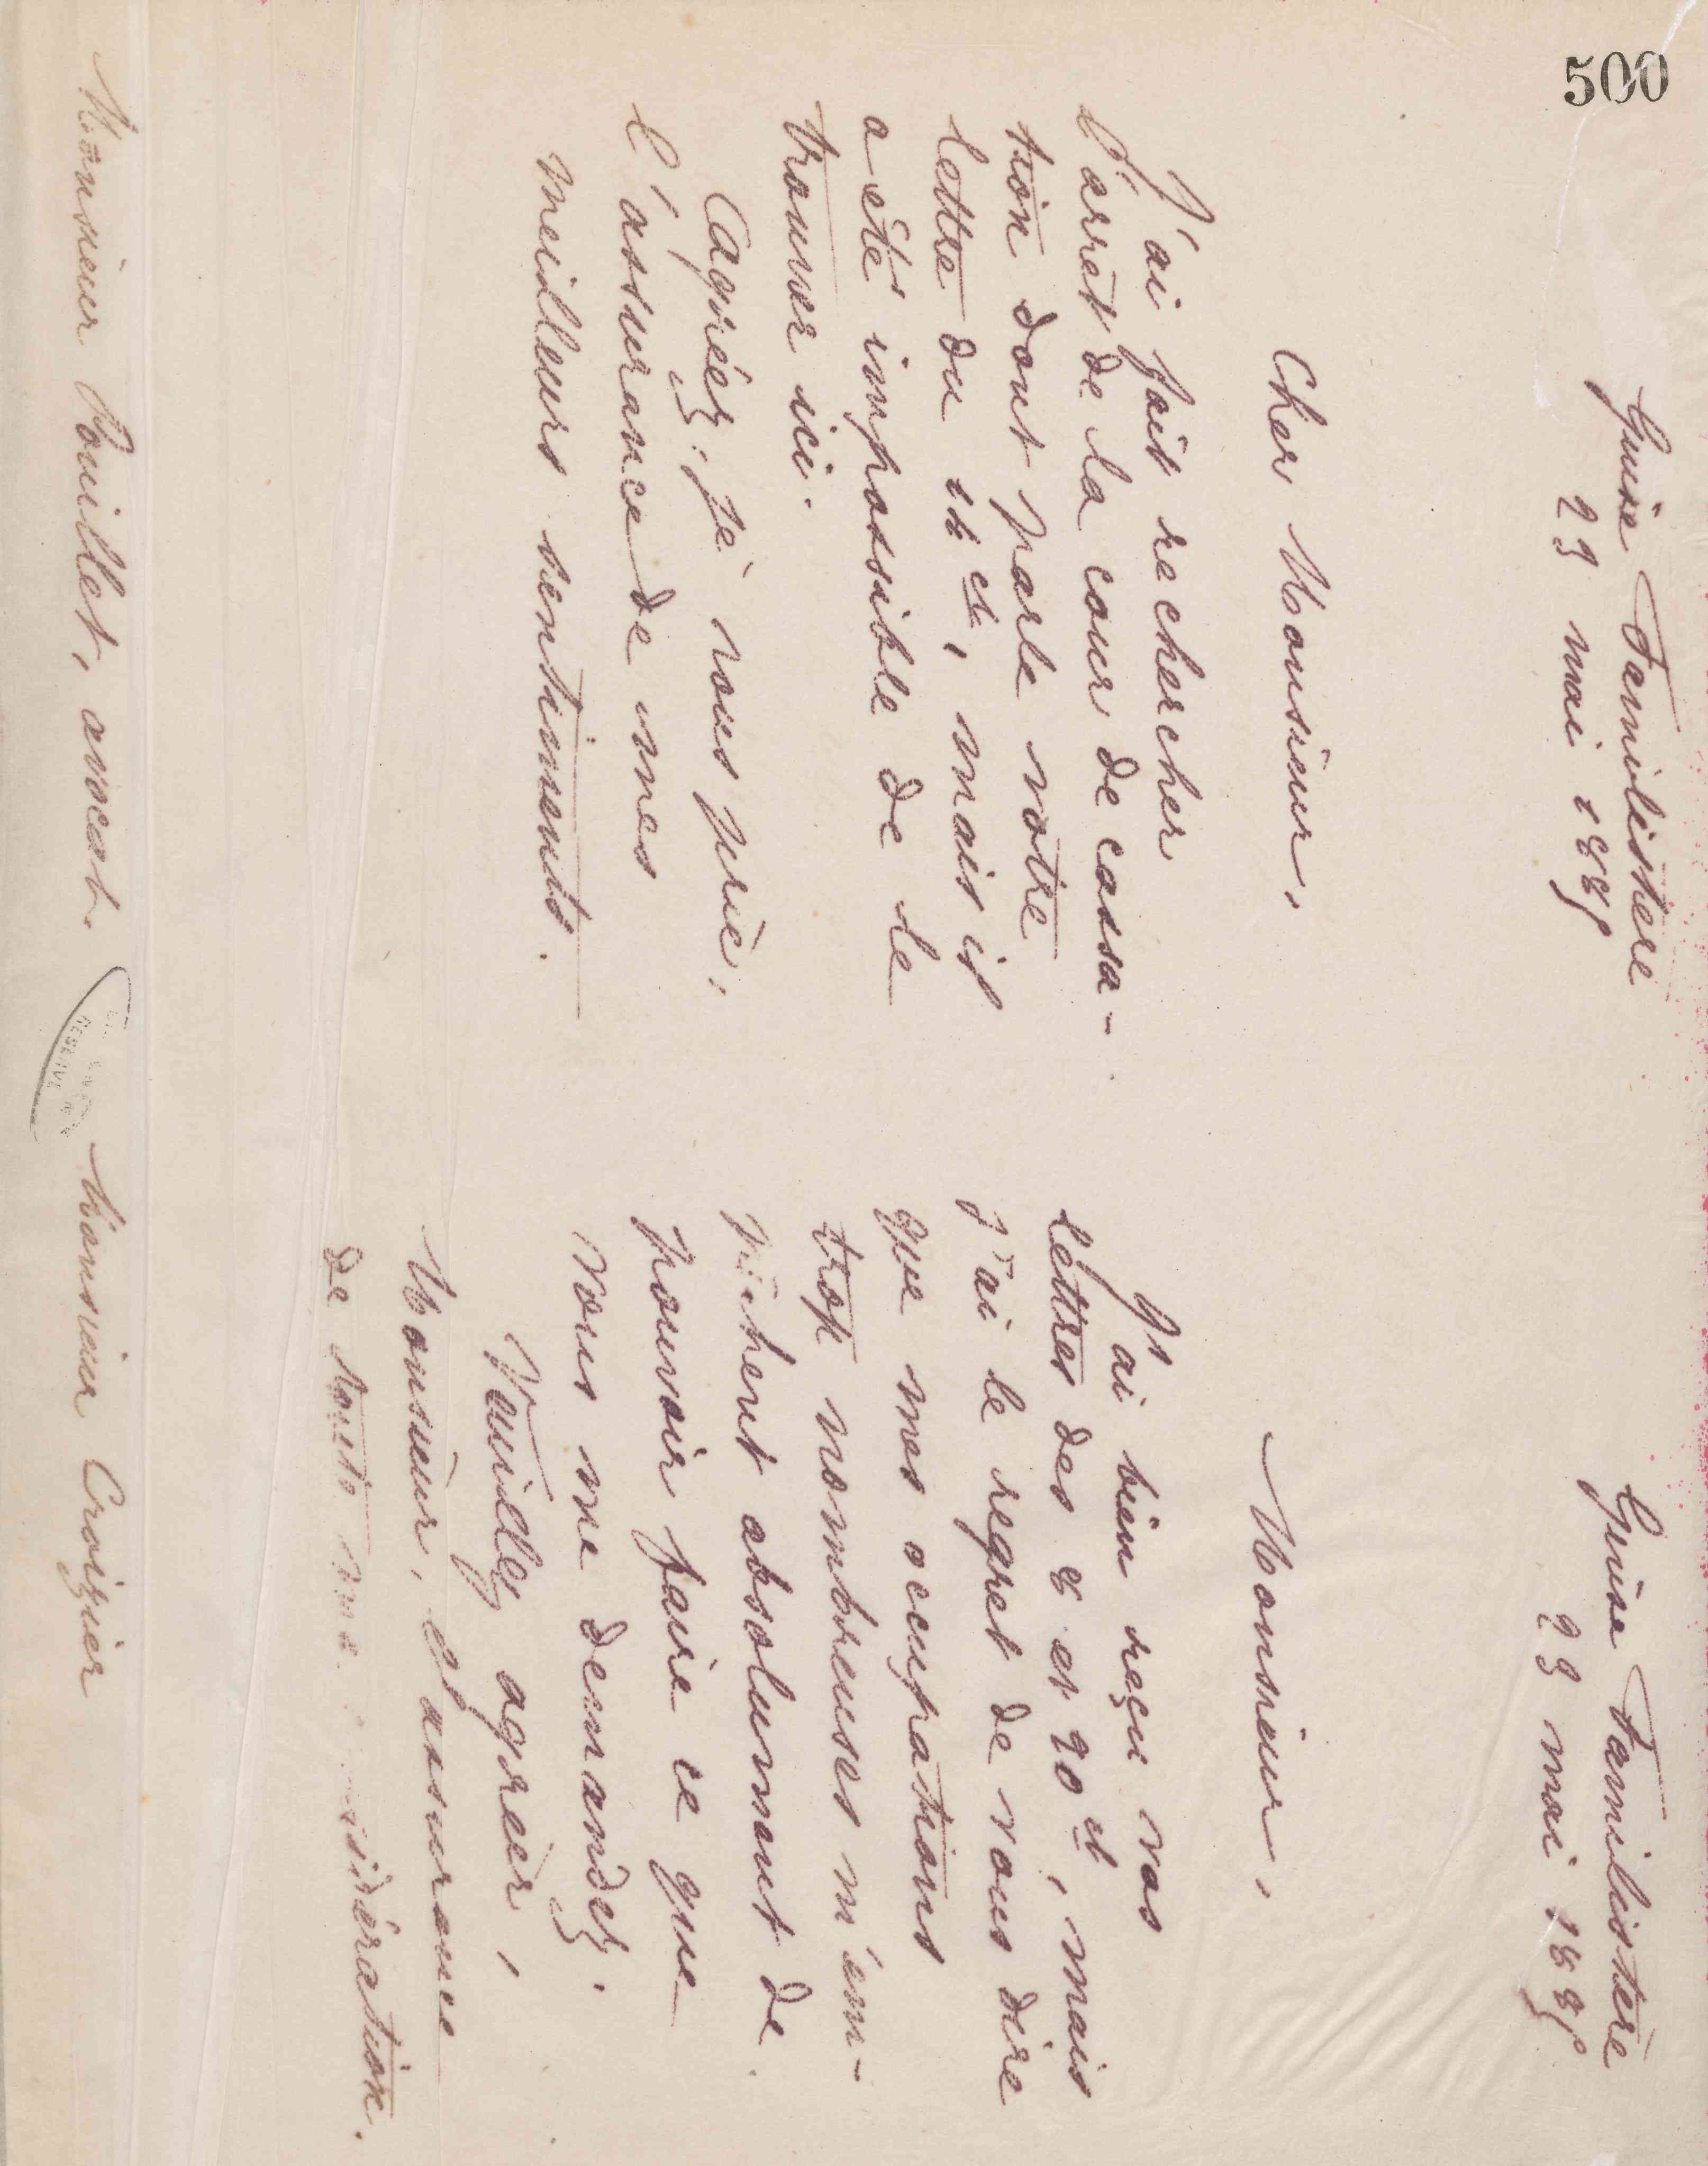 500
Guise Familistère
23 mai 1885
Cher Monsieur,
J'ai fait rechercher
l'arrêt de la cour de cassa-
tion dont parle votre
lettre du 14 ct, mais il
a été impossible de le
trouver ici.
Agréez, je vous prie,
l'assurance de mes
meilleurs sentiments.
Monsieur Pouillet, avocat.
Guise Familistère
23 mai 1885
Monsieur,
J'ai bien reçu vos
lettres des 8 et 20 ct, mais
j'ai le regret de vous dire
que mes occupations
trop nombreuses m'em-
pêchent absolument de
pouvoir faire ce que
vous me demandez.
Veuillez agréer,
Monsieur, l'assurance
de toute ma considération.
Monsieur Croizier